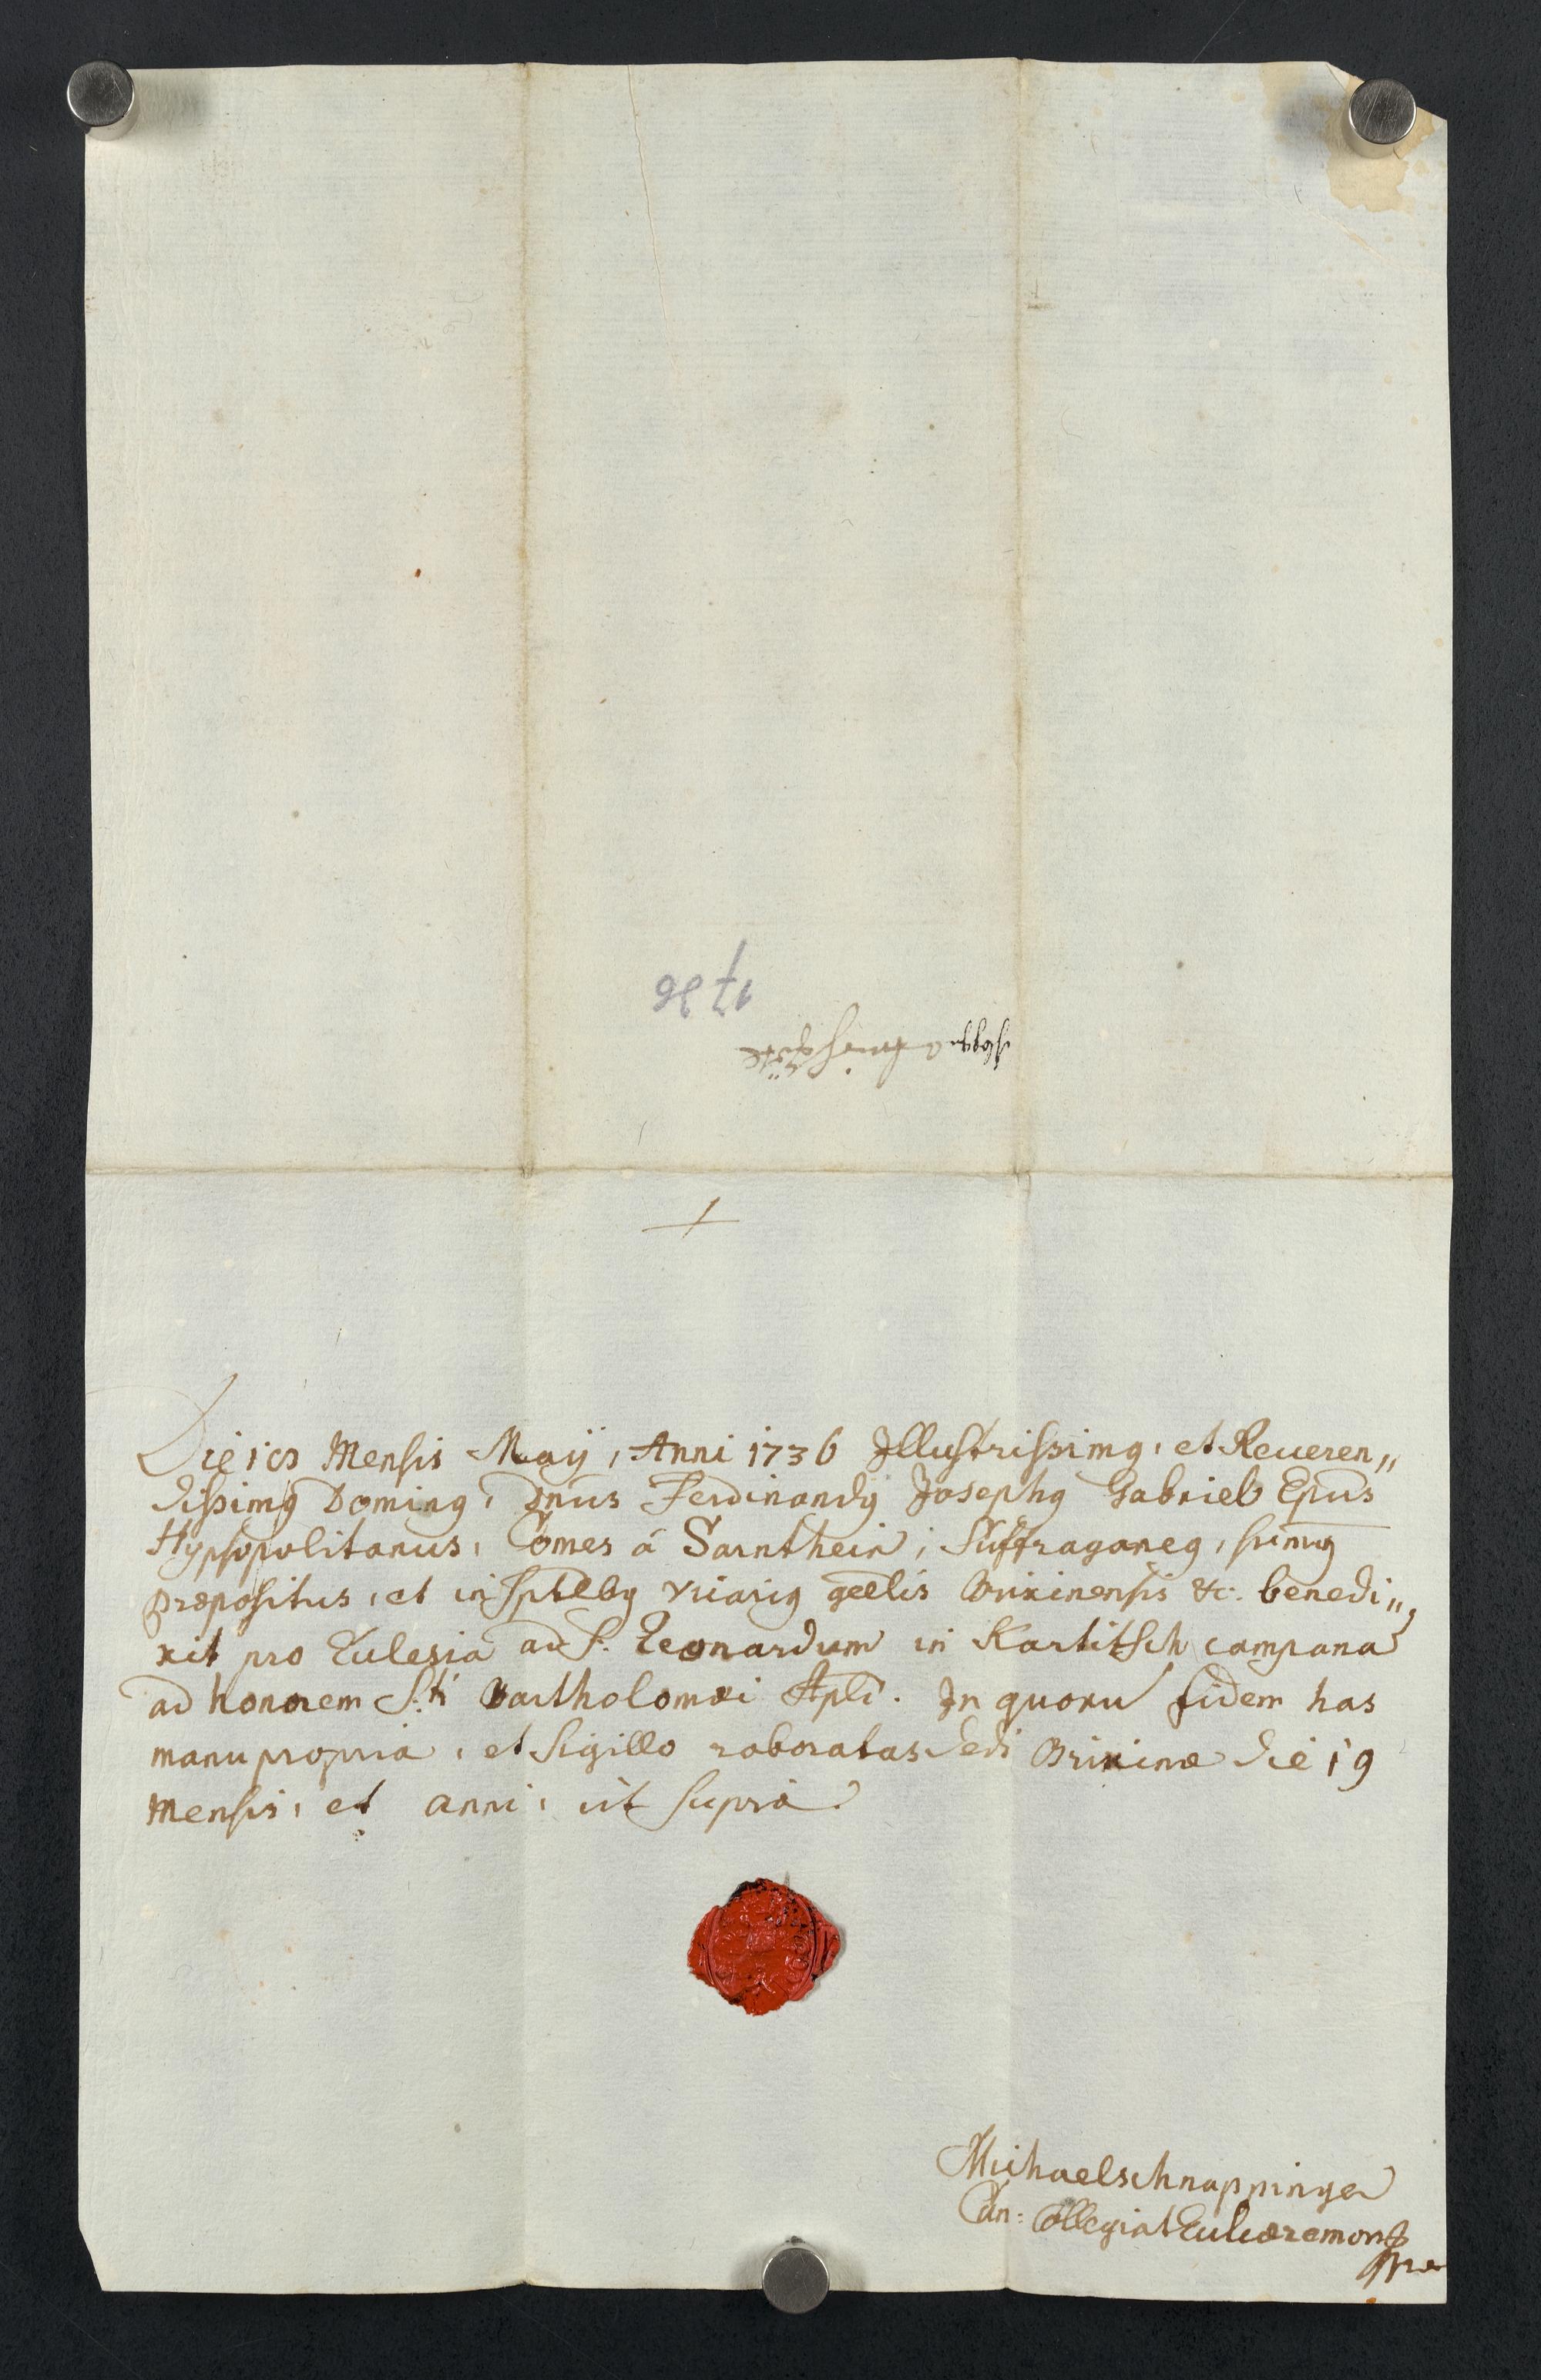 1736
Die 18 Mensis Maÿ, Anni 1736 Jllustrissimq, et Reueren„
dissimq Dominq, Dnus Ferdinandq Josephq Gabriel Epus
Hypsopolitanus, Comes á Sarnthein, Suffraganeq, sumq
præpositus, et in sptlbq vicariq gnlis Brixinensis &c. benedi„
xit pro Ecclesia ad S. Leonardum in Kartitsch campana
ad honorem S.ti Bartholomæi Apli. In quoru fidem has
manu propria, et sigillo roboratas dedi Brixinæ die 19
Mensis, et anni, ut supra.
Michael schnappinger
Can: Collegiat Eccl cæremon
mpria